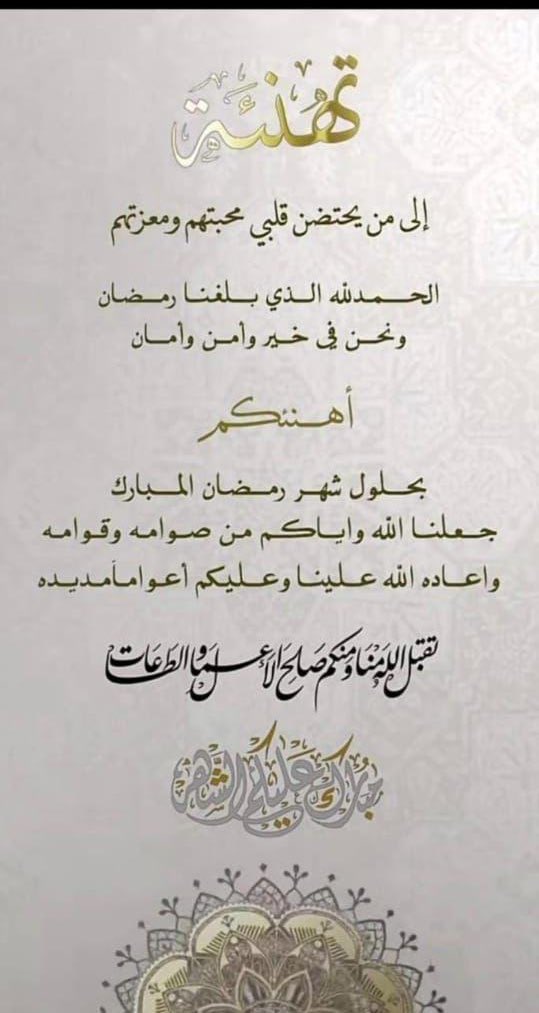 تهنئة
إلى من يحتضن قلبي محبتهم ومعزتهم
الحمدلله الذي بلغنا رمضان
ونحن في خير وأمن وأمان
أهنئكم
بحلول شهر رمضان المبارك
جعلنا الله واياكم من صوامه وقوامه
واعاده الله علينا وعليكم أعواماًمديده
تقبل الله منا ومنكم صالح الاعمال والطاعات
مبارك عليكم الشهر